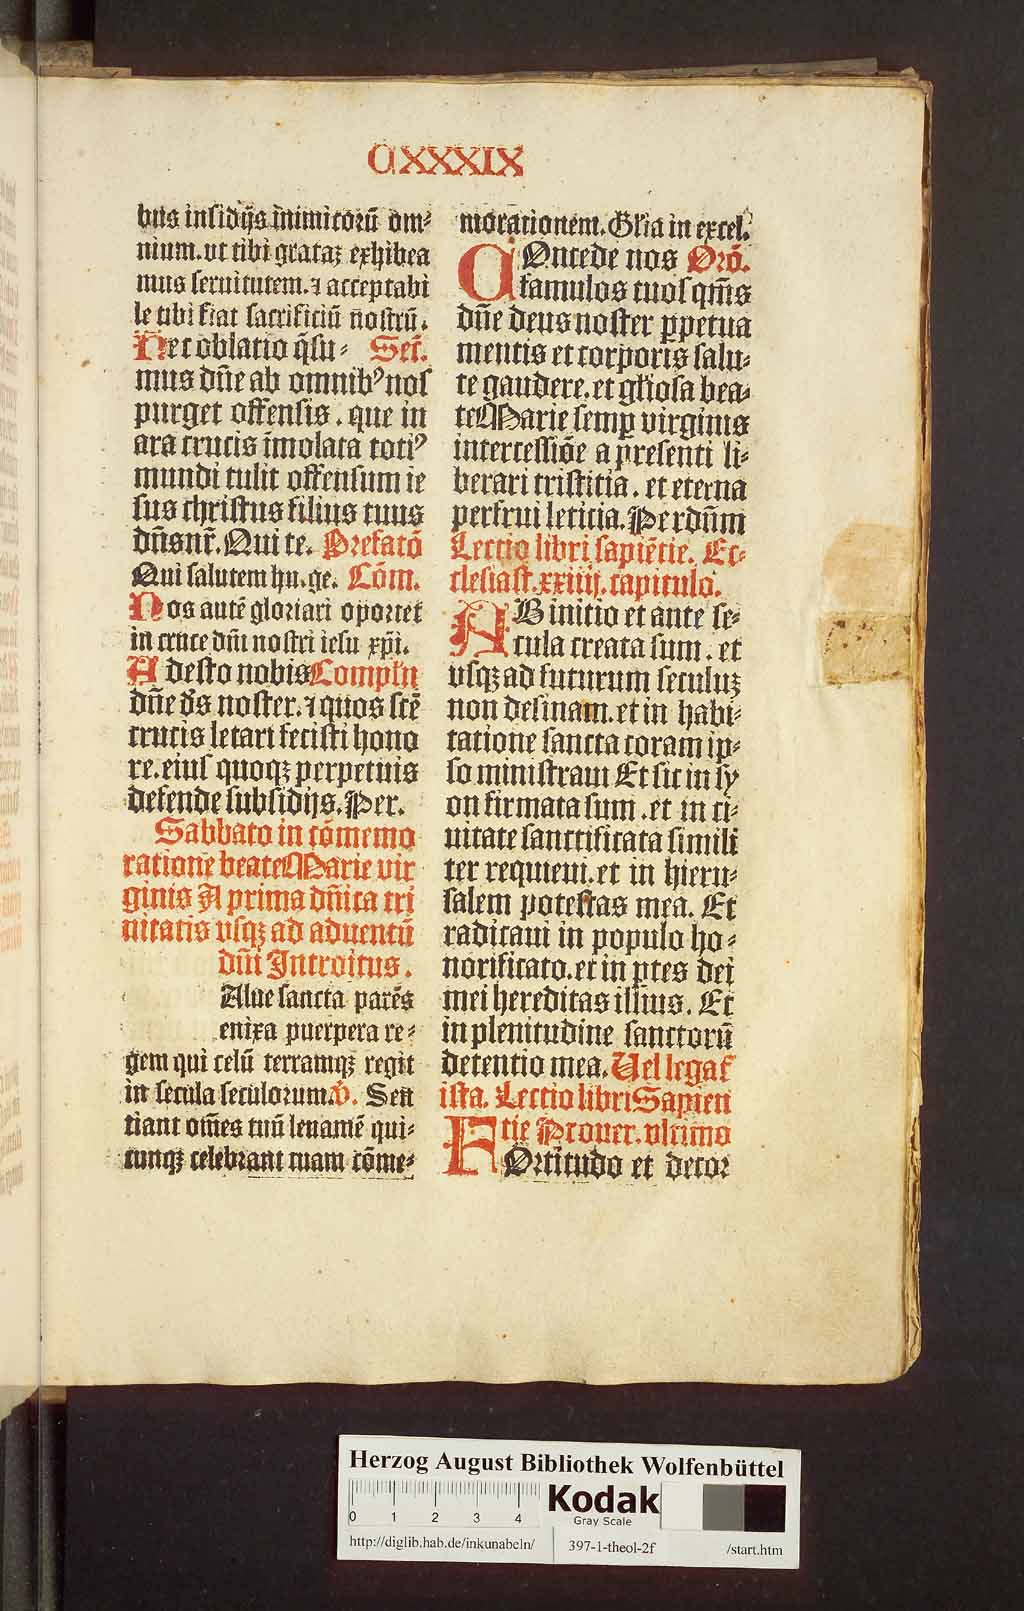 CXXXIX
bus insidijs inimicorū om⸗
nium. ut tibi grataꝫ exhibea
mus seruitutem. ⁊ acceptabi
le tibi fiat sacrificiū nostrū.
Hec oblatio q̄su⸗ Secͬ.
mus dn̄e ab omnibꝰ nos
purget offensis. que in
ara crucis īmolata totiꝰ
mundi tulit offensum ie
sus christus filius tuus
dn̄s nr̄. Qui te. Prefatō
Qui salutem hu. ge. Cōm.
Nos autē gloriari oportet
in cruce dn̄i nostri iesu xp̄i.
Adesto nobis Compln̄
dn̄e ds̄ noster. ⁊ quos scē
crucis letari fecisti hono
re. eius quoqꝫ perpetuis
defende subsidijs. Per.
Sabbato in cōmemo
ratione beate Marie vir
ginis A prima dn̄ica tri
nitatis vsqꝫ ad aduentū
dn̄i Introitus.
Alue sancta parēs
enixa puerpera re⸗
gem qui celū terramqꝫ regit
in secula seculorum. v̄. Sen
tiant om̄es tuū leuamē qui⸗
cunqꝫ celebrant tuam cōme⸗
morationem. Gl̓ia in excel.
COncede nos Orō.
famulos tuos qm̄s
dn̄e deus noster ꝑpetua
mentis et corporis salu⸗
te gaudere. et gl̓iosa bea⸗
te Marie semꝑ virginis
intercessiōe a presenti li⸗
berari tristitia. et eterna
perfrui leticia. Per dn̄m
Lectio libri sapiētie. Ec⸗
clesiast. xxiiij. capitulo.
AB initio et ante se⸗
cula creata sum. et
vsqꝫ ad futurum seculuꝫ
non desinam. et in habi⸗
tatione sancta coram ip⸗
so ministraui Et sic in sy
on firmata sum. et in ci⸗
uitate sanctificata simili
ter requieui. et in hieru⸗
salem potestas mea. Et
radicaui in populo ho⸗
norificato. et in ꝑtes dei
mei hereditas illius. Et
in plenitudine sanctorū
detentio mea. Uel legat̓
ista. Lectio libri Sapien
tie Prouer. vltimo
FOrtitudo et decor
Herzog August Bibliothek Wolfenbüttel
0 1 2 3 4
Kodak
Gray Scale
http://diglib.hab.de/inkunabeln/ 397-1-theol-2f /start.htm